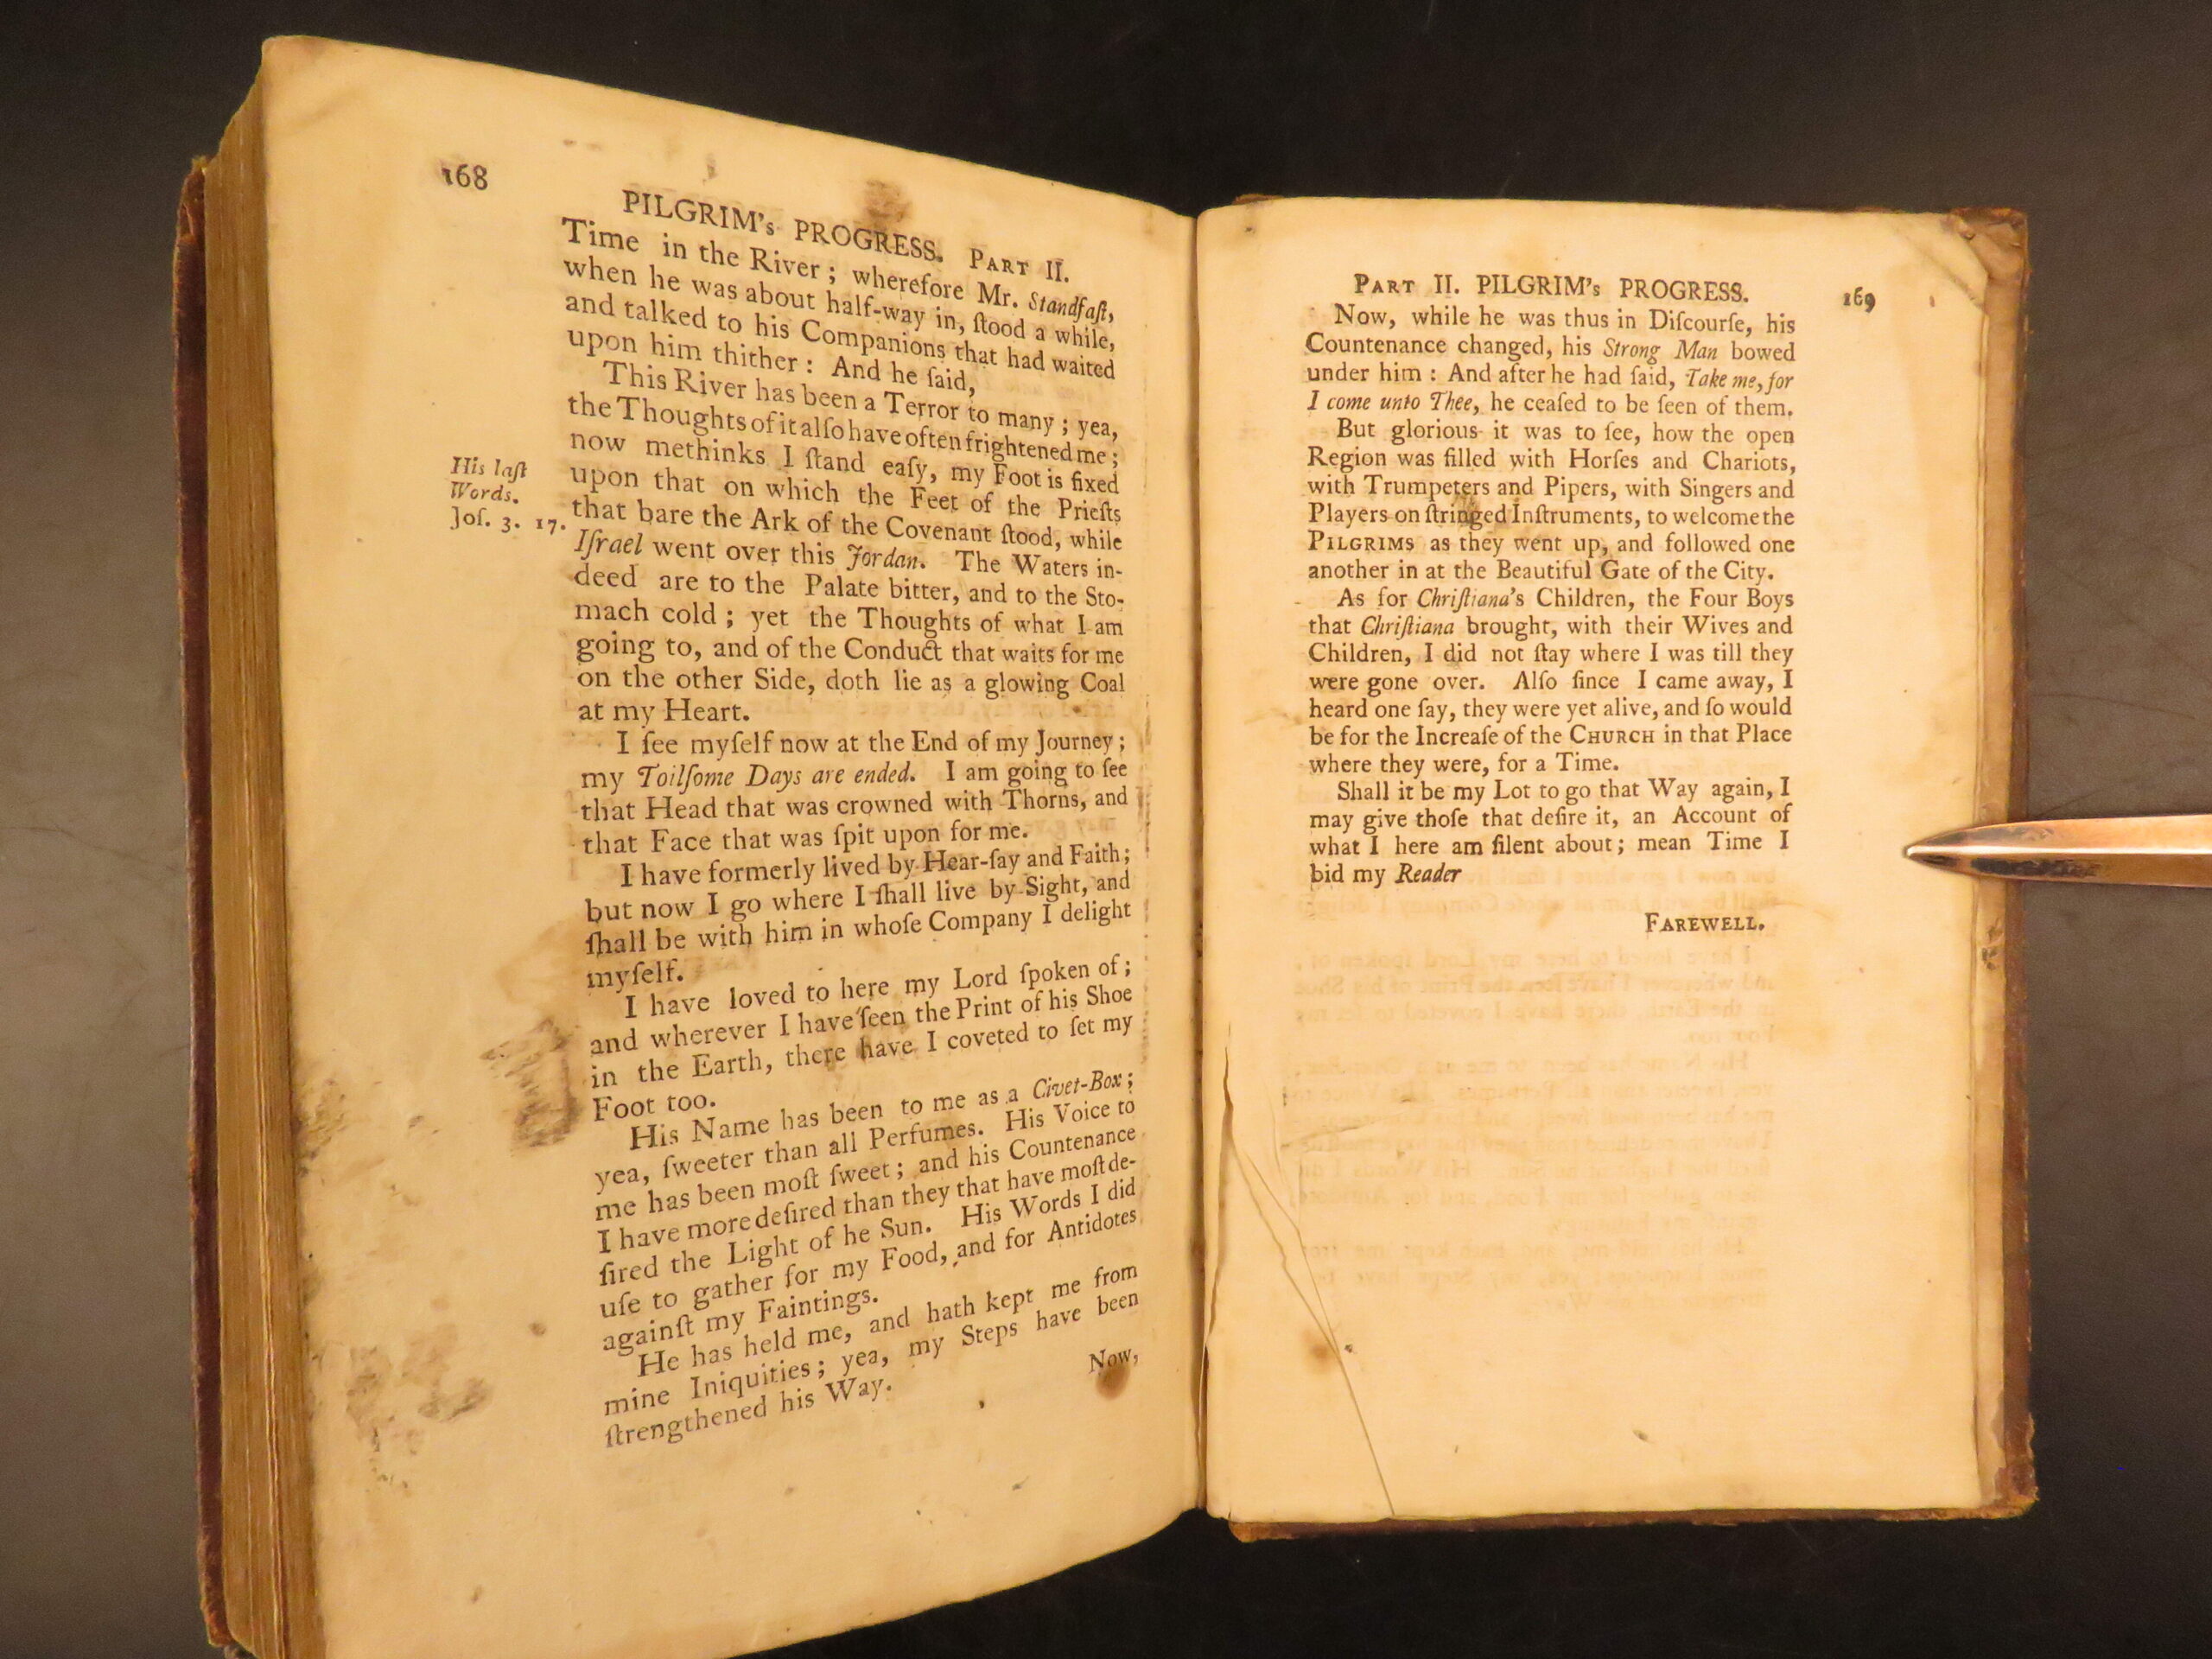 168
PILGRIM's PROGRESS. PART II.
Time in the River; wherefore Mr. Standfaſt,
when he was about half-way in, ſtood a while,
and talked to his Companions that had waited
upon him thither: And he ſaid,
This River has been a Terror to many; yea,
the Thoughts of it alſo have often frightened me;
now methinks I ſtand eaſy, my Foot is fixed
upon that on which the Feet of the Prieſts
that bare the Ark of the Covenant ſtood, while
Iſrael went over this Jordan. The Waters in-
deed are to the Palate bitter, and to the Sto-
mach cold; yet the Thoughts of what I am
going to, and of the Conduct that waits for me
on the other Side, doth lie as a glowing Coal
at my Heart.
His laſt
Words.
Joſ. 3. 17.
I ſee myſelf now at the End of my Journey;
my Toilſome Days are ended. I am going to ſee
that Head that was crowned with Thorns, and
that Face that was ſpit upon for me.
I have formerly lived by Hear-ſay and Faith;
but now I go where I ſhall live by Sight, and
ſhall be with him in whoſe Company I delight
myſelf.
I have loved to here my Lord ſpoken of;
and wherever I have ſeen the Print of his Shoe
in the Earth, there have I coveted to ſet my
Foot too.
His Name has been to me as a Civet-Box;
yea, ſweeter than all Perfumes. His Voice to
me has been moſt ſweet; and his Countenance
I have more deſired than they that have moſt de-
ſired the Light of he Sun. His Words I did
uſe to gather for my Food, and for Antidotes
againſt my Faintings.
He has held me, and hath kept me from
mine Iniquities; yea, my Steps have been
ſtrengthened his Way.
Now,
PART II. PILGRIM's PROGRESS. 169
Now, while he was thus in Diſcourſe, his
Countenance changed, his Strong Man bowed
under him: And after he had ſaid, Take me, for
I come unto Thee, he ceaſed to be ſeen of them.
But glorious it was to ſee, how the open
Region was filled with Horſes and Chariots,
with Trumpeters and Pipers, with Singers and
Players on ſtringed Inſtruments, to welcome the
PILGRIMS as they went up, and followed one
another in at the Beautiful Gate of the City.
As for Chriſtiana's Children, the Four Boys
that Chriſtiana brought, with their Wives and
Children, I did not ſtay where I was till they
were gone over. Alſo ſince I came away, I
heard one ſay, they were yet alive, and ſo would
be for the Increaſe of the CHURCH in that Place
where they were, for a Time.
Shall it be my Lot to go that Way again, I
may give thoſe that deſire it, an Account of
what I here am ſilent about; mean Time I
bid my Reader
FAREWELL.